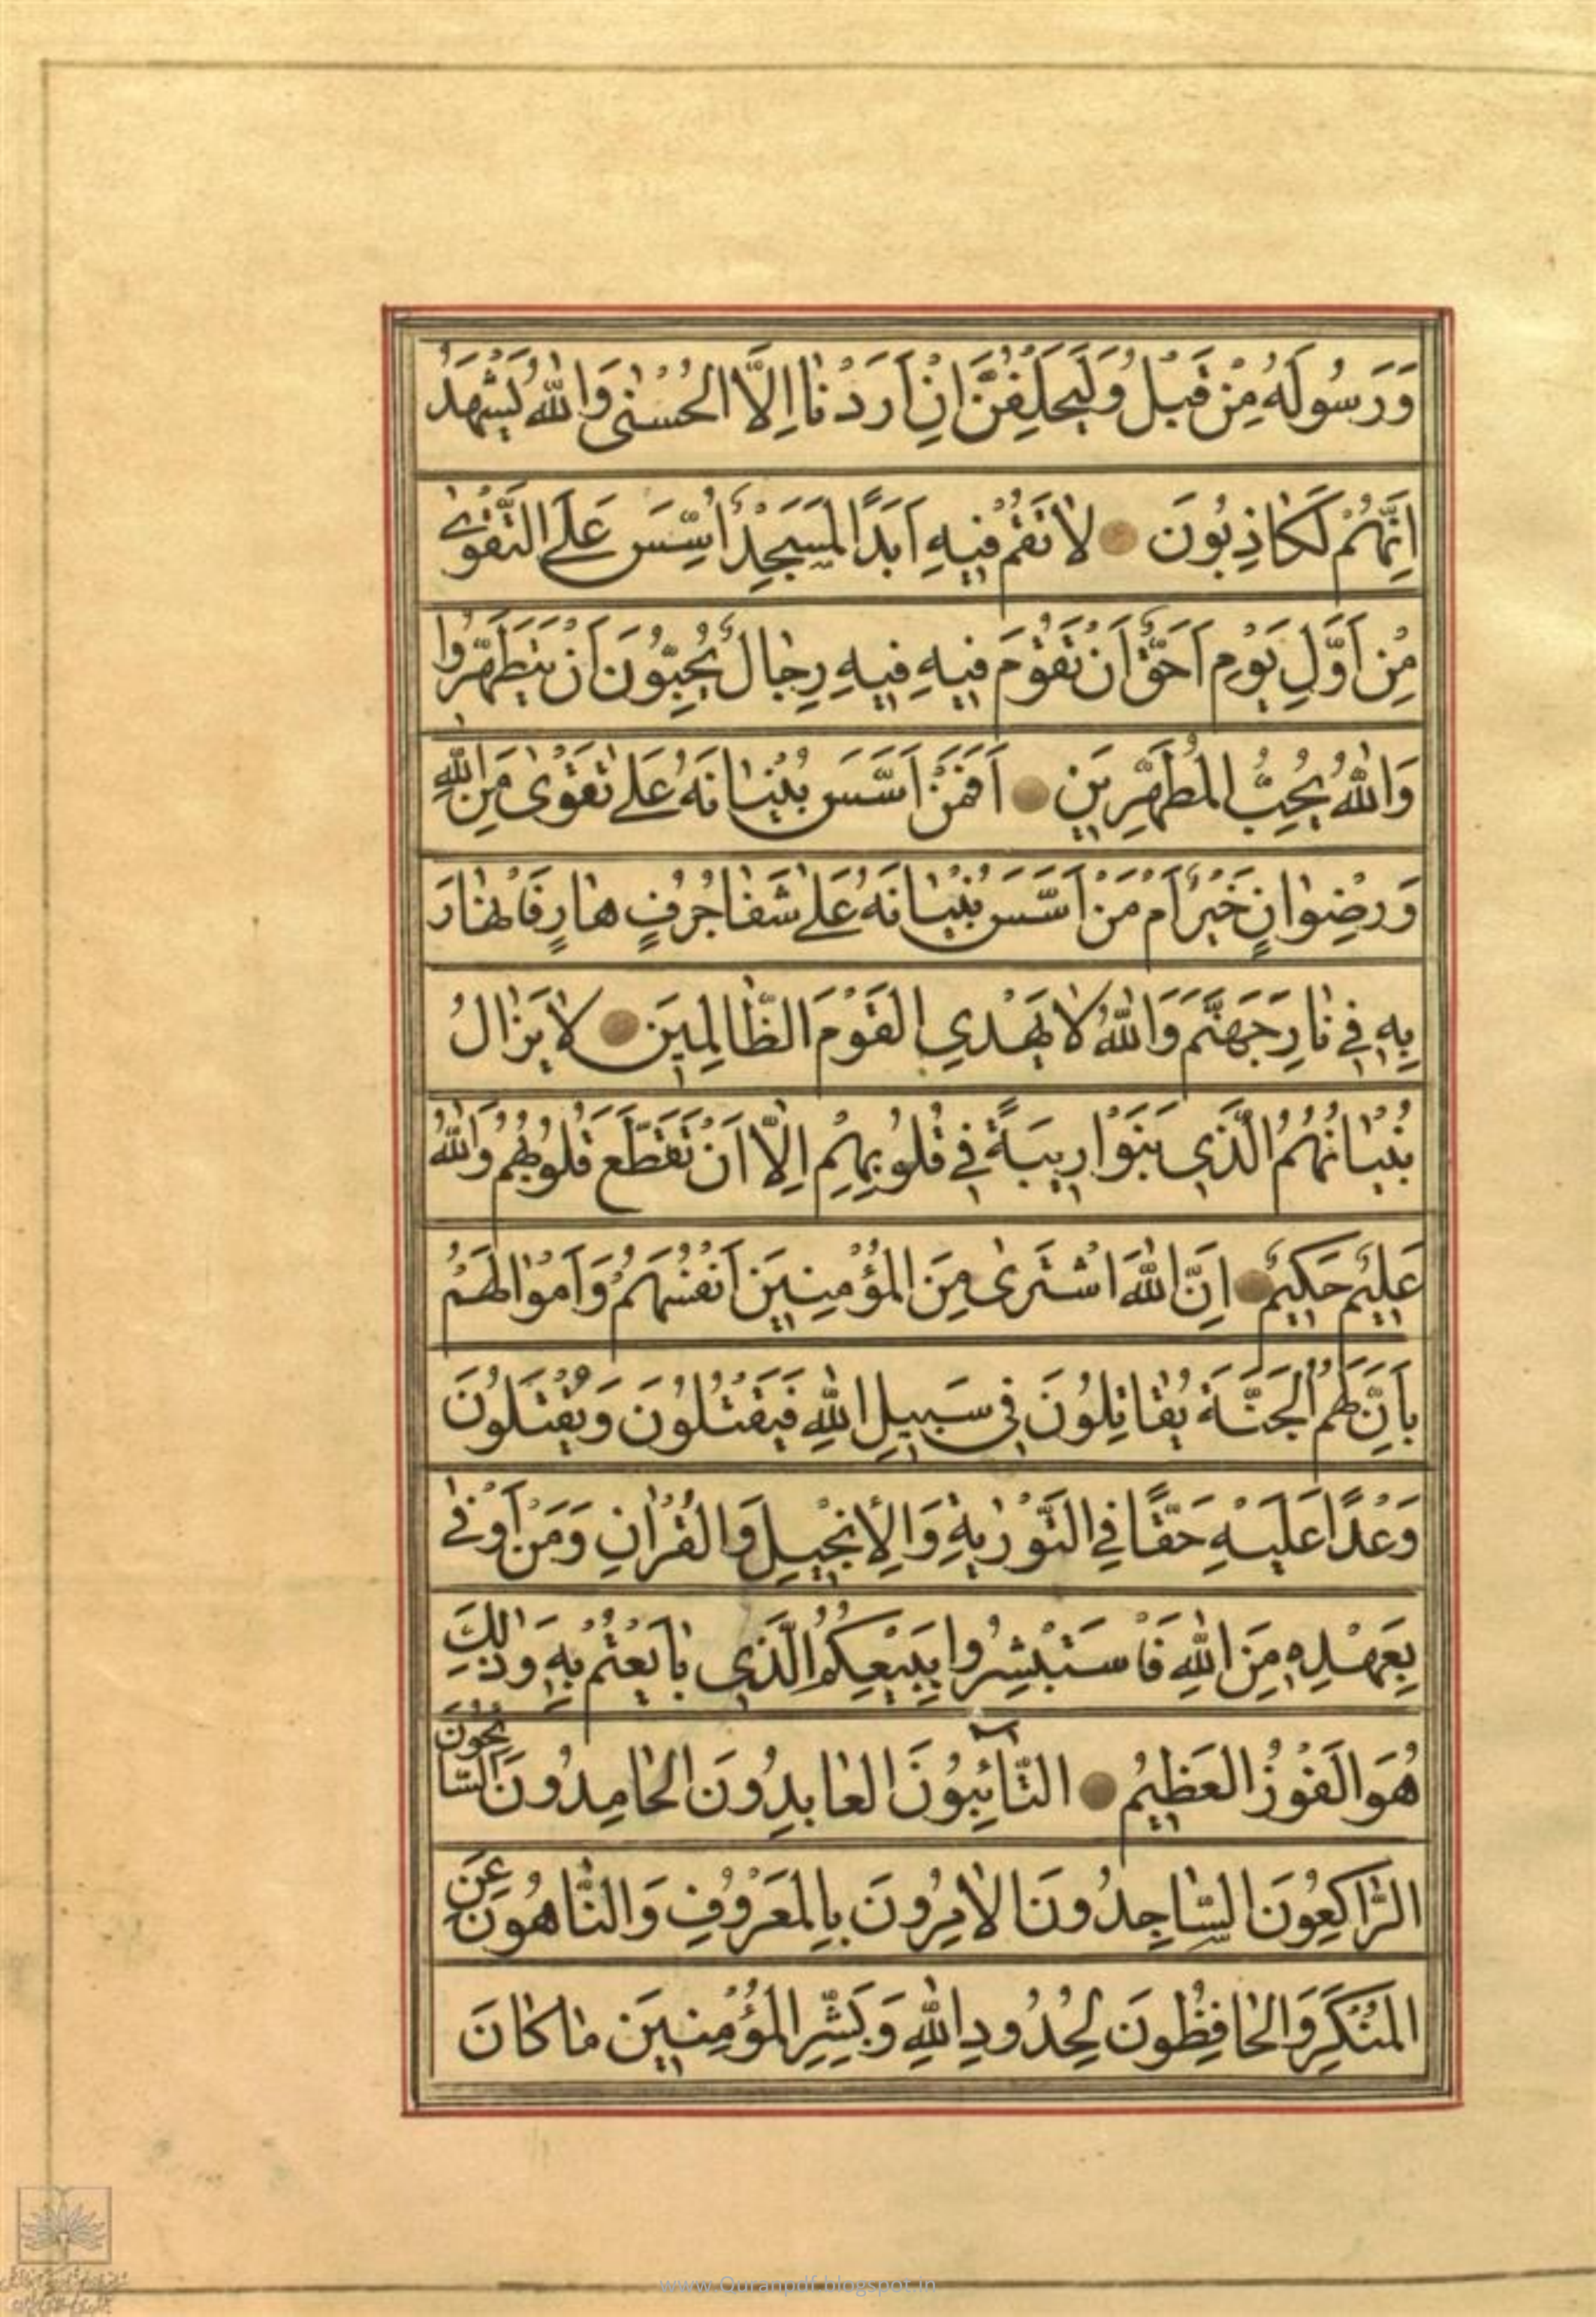 وَرَسُولَهُ مِنْ قَبْلُ وَلَيَحْلِفُنَّ اِنْ اَرَدْنَا اِلَّا الْحُسْنٰى وَاللّٰهُ يَشْهَدُ
اِنَّهُمْ لَكَاذِبُونَ لَا تَقُمْ فِيهِ اَبَدًا لَمَسْجِدٌ اُسِّسَ عَلَى التَّقْوٰى
مِنْ اَوَّلِ يَوْمٍ اَحَقُّ اَنْ تَقُومَ فِيهِ فِيهِ رِجَالٌ يُحِبُّونَ اَنْ يَتَطَهَّرُوا
وَاللّٰهُ يُحِبُّ الْمُطَّهِّرِينَ اَفَمَنْ اَسَّسَ بُنْيَانَهُ عَلٰى تَقْوٰى مِنَ اللّٰهِ
وَرِضْوَانٍ خَيْرٌ اَمْ مَنْ اَسَّسَ بُنْيَانَهُ عَلٰى شَفَا جُرُفٍ هَارٍ فَانْهَارَ
بِهِ فِي نَارِ جَهَنَّمَ وَاللّٰهُ لَا يَهْدِي الْقَوْمَ الظَّالِمِينَ لَا يَزَالُ
بُنْيَانُهُمُ الَّذِي بَنَوْا رِيبَةً فِي قُلُوبِهِمْ اِلَّا اَنْ تَقَطَّعَ قُلُوبُهُمْ وَاللّٰهُ
عَلِيمٌ حَكِيمٌ اِنَّ اللّٰهَ اشْتَرٰى مِنَ الْمُؤْمِنِينَ اَنْفُسَهُمْ وَاَمْوَالَهُمْ
بِاَنَّ لَهُمُ الْجَنَّةَ يُقَاتِلُونَ فِي سَبِيلِ اللّٰهِ فَيَقْتُلُونَ وَيُقْتَلُونَ
وَعْدًا عَلَيْهِ حَقًّا فِي التَّوْرٰيةِ وَالْاِنْجِيلِ وَالْقُرْاٰنِ وَمَنْ اَوْفٰى
بِعَهْدِهِ مِنَ اللّٰهِ فَاسْتَبْشِرُوا بِبَيْعِكُمُ الَّذِي بَايَعْتُمْ بِهِ وَذٰلِكَ
هُوَ الْفَوْزُ الْعَظِيمُ التَّائِبُونَ الْعَابِدُونَ الْحَامِدُونَ السَّائِحُونَ
الرَّاكِعُونَ السَّاجِدُونَ الْاٰمِرُونَ بِالْمَعْرُوفِ وَالنَّاهُونَ عَنِ
الْمُنْكَرِ وَالْحَافِظُونَ لِحُدُودِ اللّٰهِ وَبَشِّرِ الْمُؤْمِنِينَ مَا كَانَ
www.Quranpdf.blogspot.in